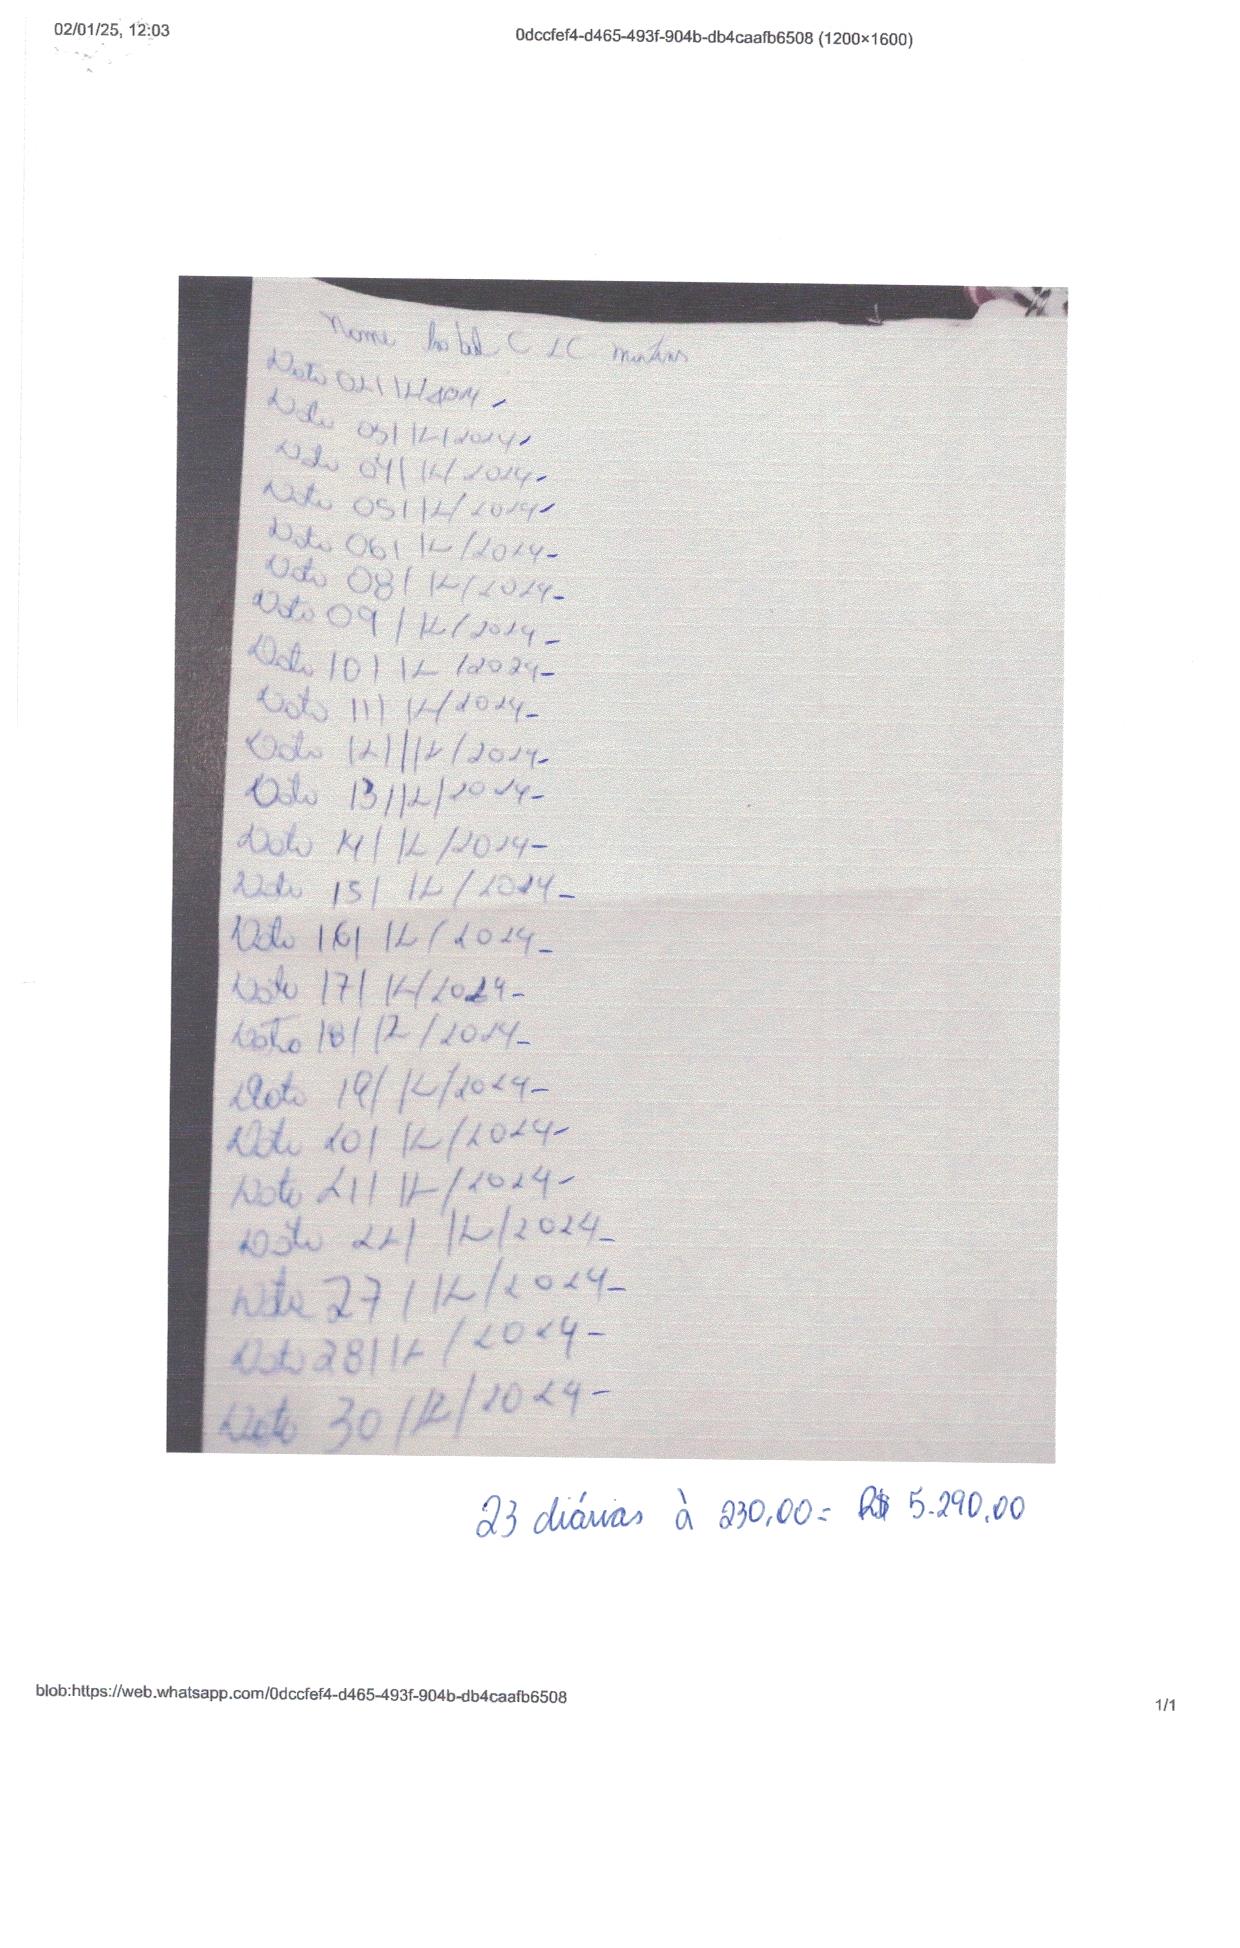 02/01/25, 12:03
0dccfef4-d465-493f-904b-db4caafb6508 (1200×1600)
Nome C LC
Data 02/12/2024 -
Data 03/12/2024 -
Data 04/12/2024 -
Data 05/12/2024 -
Data 06/12/2024 -
Data 08/12/2024 -
Data 09/12/2024 -
Data 10/12/2024 -
Data 11/12/2024 -
Data 12/12/2024 -
Data 13/12/2024 -
Data 14/12/2024 -
Data 15/12/2024 -
Data 16/12/2024 -
Data 17/12/2024 -
Data 18/12/2024 -
Data 19/12/2024 -
Data 20/12/2024 -
Data 21/12/2024 -
Data 22/12/2024 -
Data 27/12/2024 -
Data 28/12/2024 -
Data 30/12/2024 -
23 diárias à 230,00= R$ 5.290,00
blob:https://web.whatsapp.com/0dccfef4-d465-493f-904b-db4caafb6508
1/1